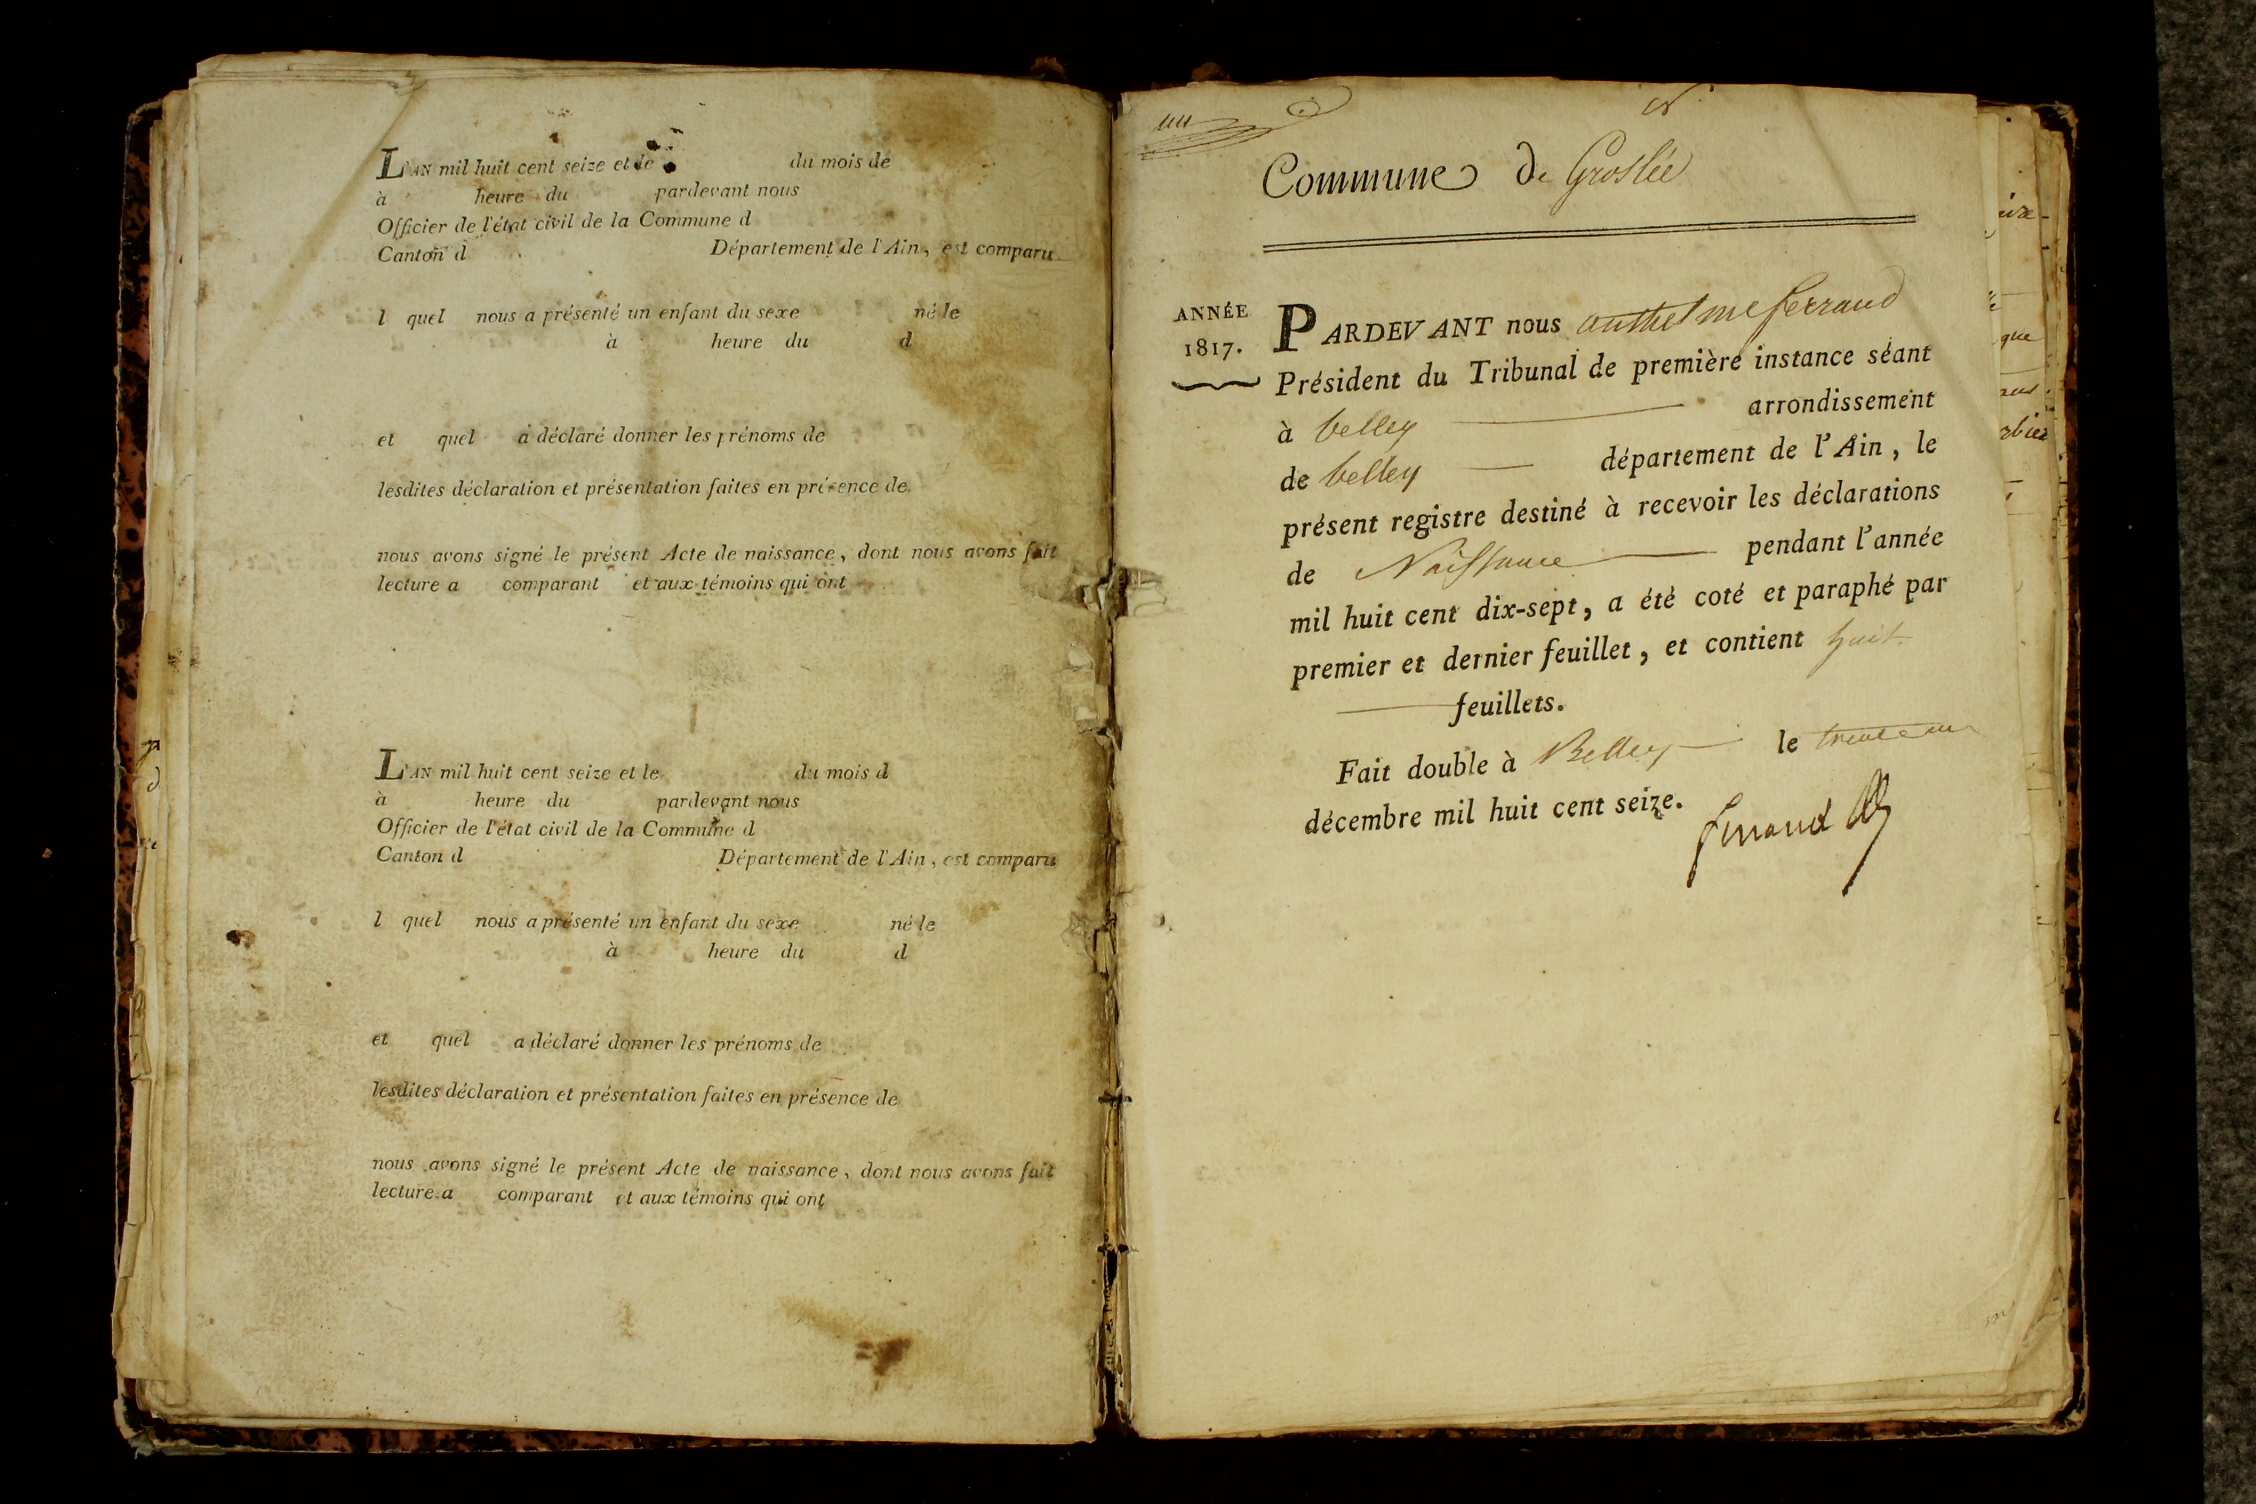 L'AN mil huit cent seize et le du mois de
à heure du pardevant nous
Officier de l'état civil de la Commune d
Canton d Département de l'Ain, est comparu
l quel nous a présenté un enfant du sexe né le
à heure du d
et quel a déclaré donner les prénoms de
lesdites déclaration et présentation faites en présence de
nous avons signé le présent Acte de naissance, dont nous avons fait
lecture a comparant et aux témoins qui ont
L'AN mil huit cent seize et le du mois d
à heure du pardevant nous
Officier de l'état civil de la Commune d
Canton d Département de l'Ain, est comparu
l quel nous a présenté un enfant du sexe né le
à heure du d
et quel a déclaré donner les prénoms de
lesdites déclaration et présentation faites en présence de
nous avons signé le présent Acte de naissance, dont nous avons fait
lecture a comparant et aux témoins qui ont
Commune de Groslée
ANNÉE
1817.
PARDEVANT nous anthelme ferrand
Président du Tribunal de première instance séant
à belley arrondissement
de belley département de l'Ain, le
présent registre destiné à recevoir les déclarations
de Naissance pendant l'année
mil huit cent dix-sept, a été coté et paraphé par
premier et dernier feuillet, et contient huit
feuillets.
Fait double à Belley le trente un
décembre mil huit cent seize.
ferrand